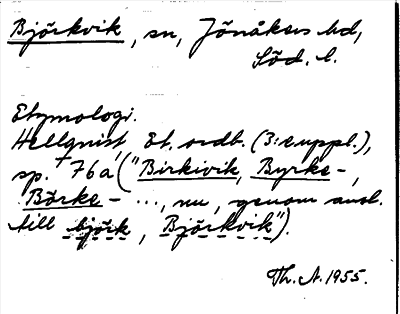 Björkvik, sn, Jönåkers hd,
Söd. l.
Etymologi.
Hellquist, Et. ordb. (3:e uppl.),
sp. 76a ("Birkivik, Byrke-,
Börke- ..., nu, genom ansl.
till björk, Björkvik").
Th. A. 1955.